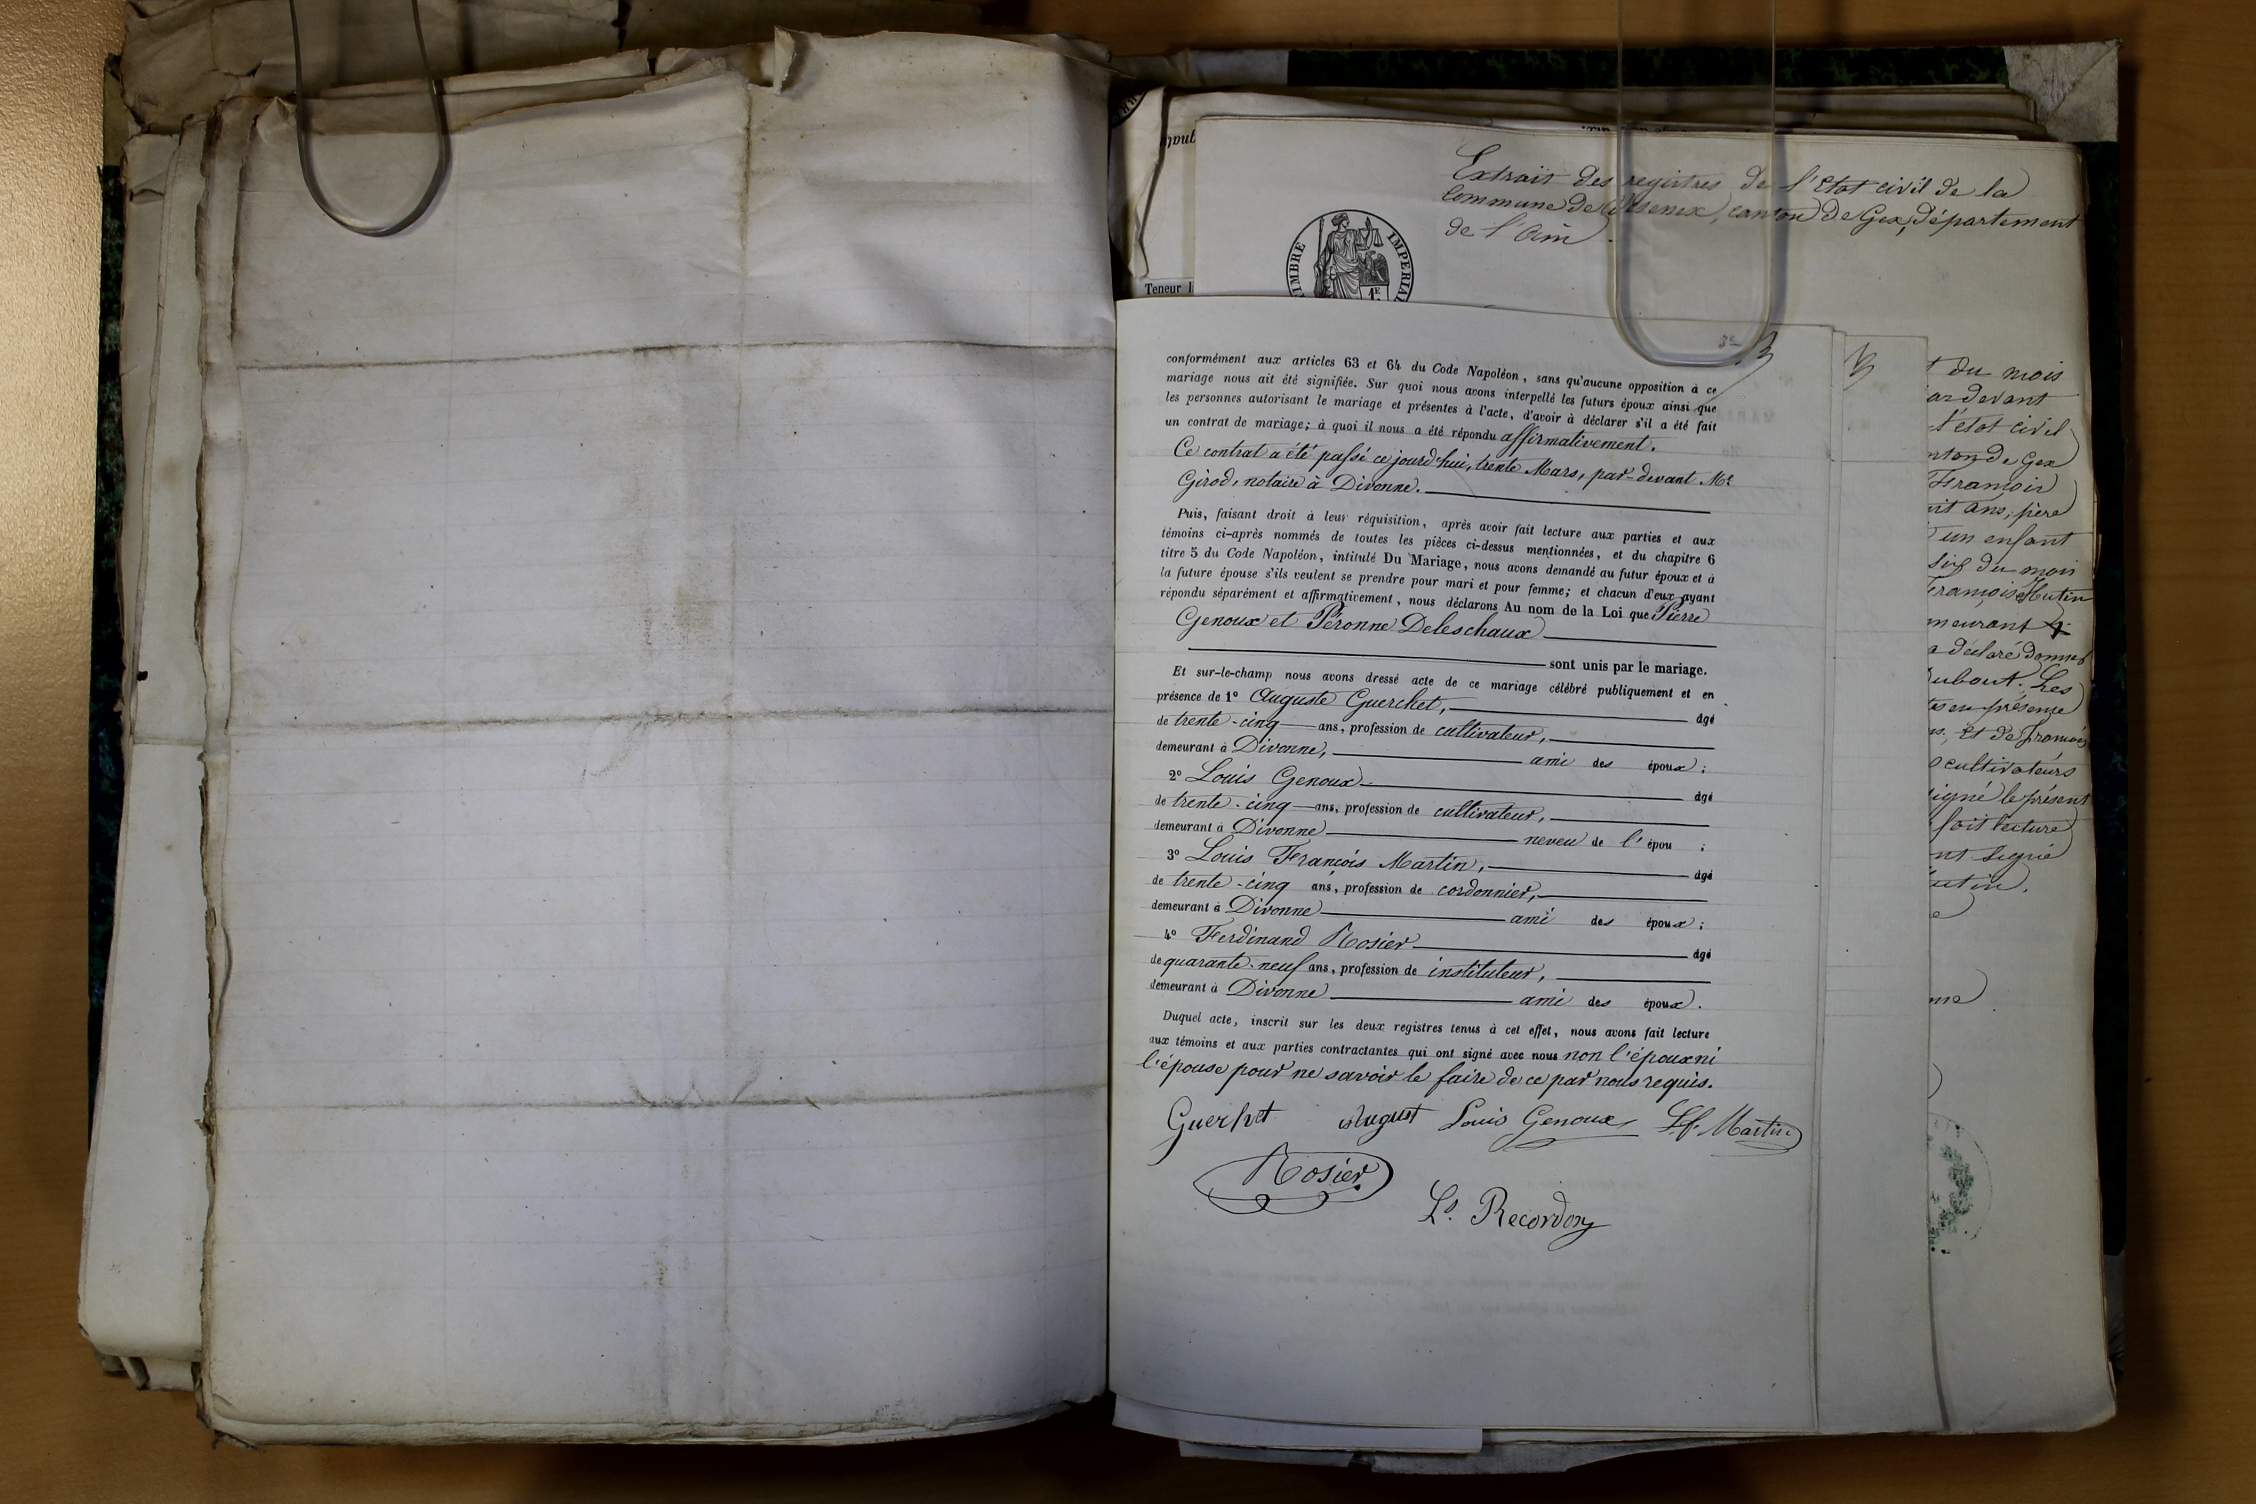 Extrait des registres de l'Etat civil de la
commune de canton de Gex, département
de l'Ain.
TIMBRE IMPERIAL
1E
Teneur
conformément aux articles 63 et 64 du Code Napoléon, sans qu'aucune opposition à ce
mariage nous ait été signifiée. Sur quoi nous avons interpellé les futurs époux ainsi que
les personnes autorisant le mariage et présentes à l'acte, d'avoir à déclarer s'il a été fait
un contrat de mariage; à quoi il nous a été répondu affirmativement.
Ce contrat a été passé ce jourd'hui, trente Mars, par-devant Me
Girod, notaire à Divonne.
Puis, faisant droit à leur réquisition, après avoir fait lecture aux parties et aux
témoins ci-après nommés de toutes les pièces ci-dessus mentionnées, et du chapitre 6
titre 5 du Code Napoléon, intitulé Du Mariage, nous avons demandé au futur époux et à
la future épouse s'ils veulent se prendre pour mari et pour femme; et chacun d'eux ayant
répondu séparément et affirmativement, nous déclarons Au nom de la Loi que Pierre
Genoux et Péronne Deleschaux
sont unis par le mariage.
Et sur-le-champ nous avons dressé acte de ce mariage célébré publiquement et en
présence de 1° Auguste Guerchet, âgé
de trente-cinq ans, profession de cultivateur,
demeurant à Divonne, ami des époux;
2° Louis Genoux âgé
de trente-cinq ans, profession de cultivateur,
demeurant à Divonne neveu de l'épou ;
3° Louis François Martin, âgé
de trente-cinq ans, profession de cordonnier,
demeurant à Divonne ami des époux;
4° Ferdinand Rosier âgé
de quarante-neuf ans, profession de instituteur,
demeurant à Divonne ami des époux.
Duquel acte, inscrit sur les deux registres tenus à cet effet, nous avons fait lecture
aux témoins et aux parties contractantes qui ont signé avec nous non l'époux ni
l'épouse pour ne savoir le faire de ce par nous requis.
Guerhet August Louis Genoux L.f. Martin
Rosier
Ls. Recordon
du mois
devant
l'état civil
de Gex
François
ans, père
un enfant
six du mois
François Hutin
a déclaré donner
Les
en présence
et de françois
cultivateurs
signé le présent
fait lecture
signé